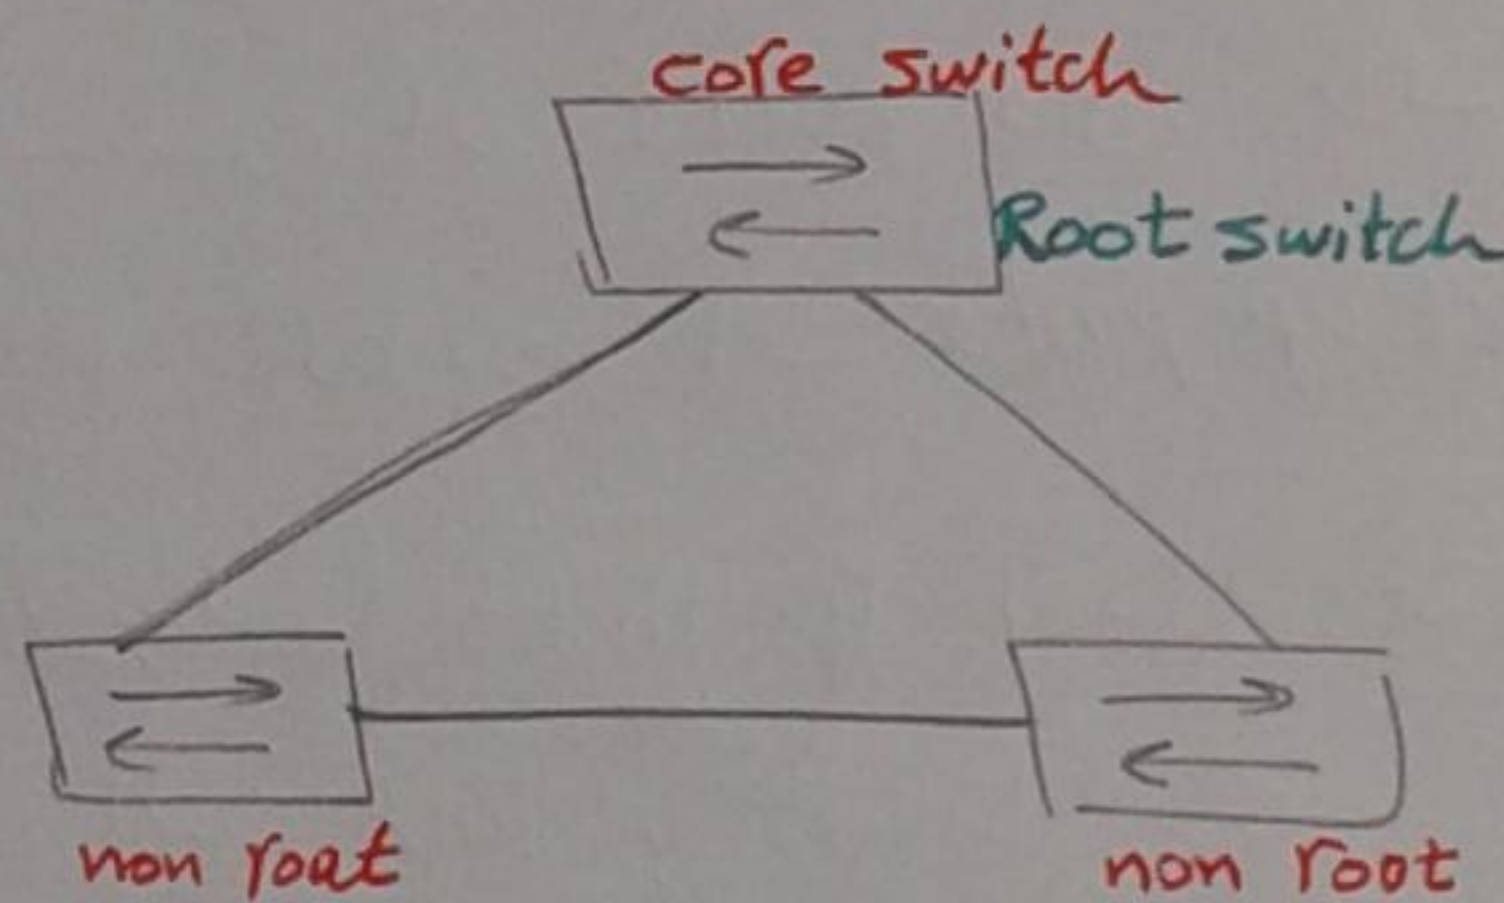 core switch
Root switch
non roat
non root